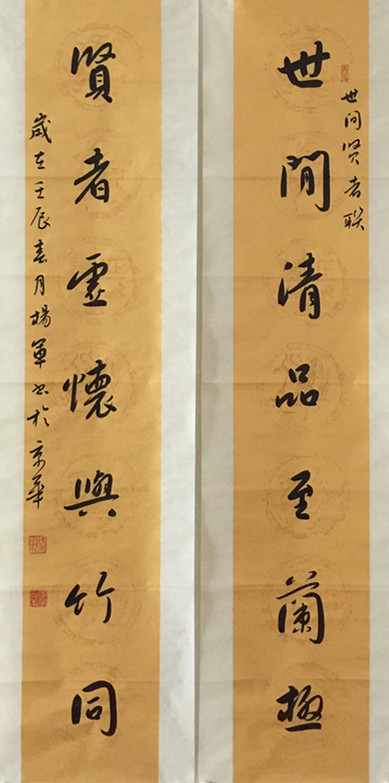 世间贤者联
世間清品至蘭極
賢者虚懷與竹同
歲在壬辰春月楊軍書於京華